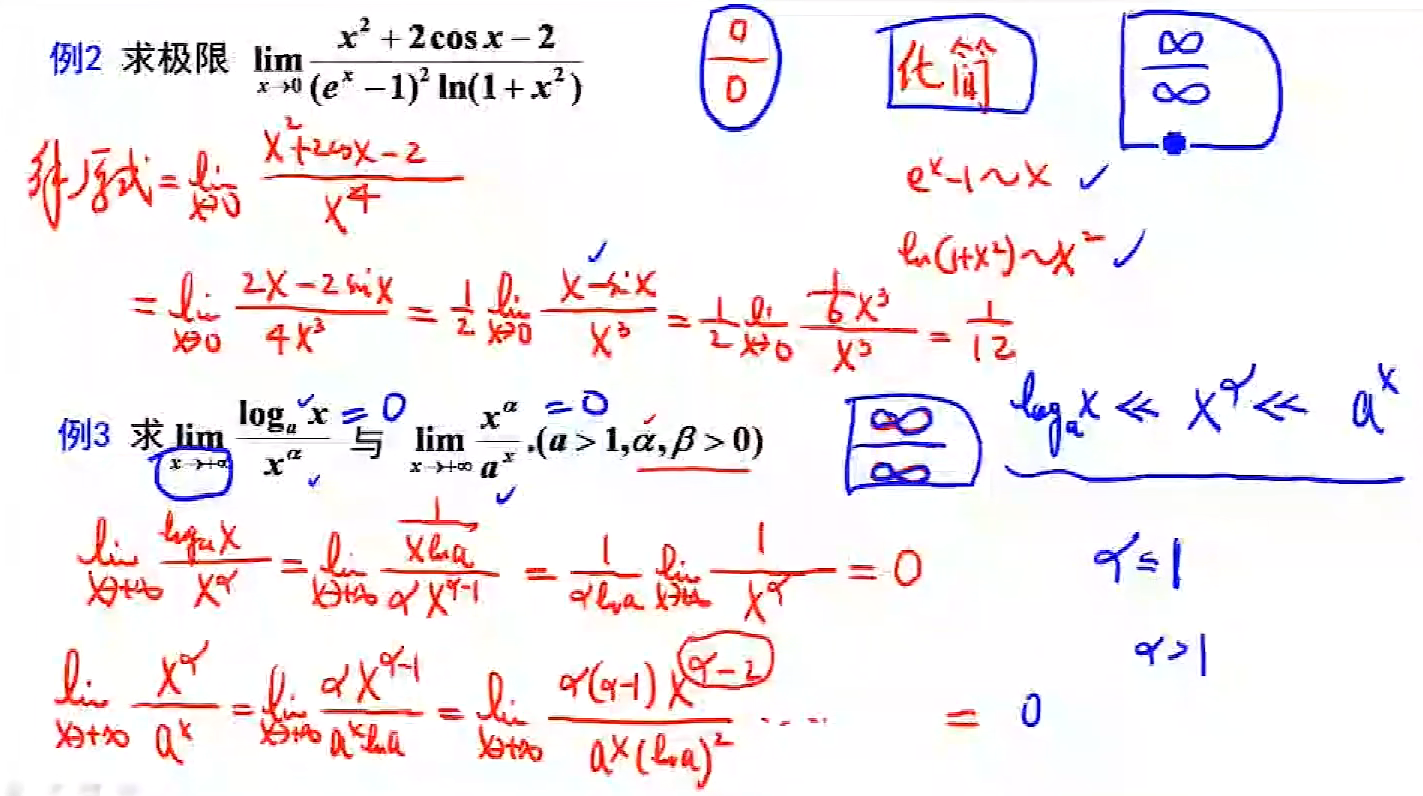 例2 求极限 lim x→0 (x² + 2cos x − 2)/((eˣ − 1)² ln(1 + x²)) 0/0 化简 ∞/∞
解 原式 = lim x→0 (x²+2cosx−2)/x⁴ eˣ−1~x ✓
ln(1+x²)~x² ✓
= lim x→0 (2x−2sinx)/4x³ = 1/2 lim x→0 (x−sinx)/x³ = 1/2 lim x→0 (1/6 x³)/x³ = 1/12
例3 求 lim x→+∞ logₐ x/x^α = 0 与 lim x→+∞ x^α/aˣ = 0 .(a > 1, α, β > 0) ∞/∞ logₐx ≪ x^α ≪ aˣ
lim x→+∞ logₐx/x^α = lim x→+∞ (1/(x ln a))/(αx^(α−1)) = 1/(α ln a) lim x→+∞ 1/x^α = 0 α≤1
α>1
lim x→+∞ x^α/aˣ = lim x→+∞ αx^(α−1)/(aˣ ln a) = lim x→+∞ α(α−1)x^(α−2)/(aˣ(ln a)²) ···· = 0